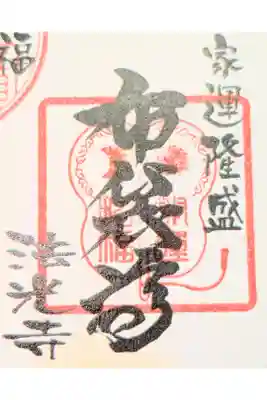 家運隆盛
布袋尊
法光寺
福
開運
招福